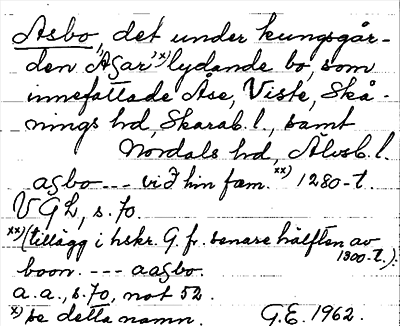 Asbo, det under kungsgår-
den Asar x) lydande bo, som
innefattade Åse, Viste, Skå-
nings hd, Skarab. l., samt
Nordals hd, Älvsb. l.
asbo --- viþ hin fæm. xx) 1280-t.
VGL, s. 70.
xx) (tillägg i hskr. G. fr. senare hälften av
1300-t.):
boon. --- aasbo.
a.a., s. 70, not 52.
x) se detta namn. G.E. 1962.